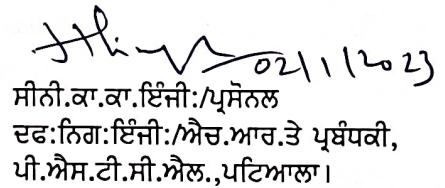 02/1/2023
ਸੀਨੀ.ਕਾ.ਕਾ.ਇੰਜੀ:/ਪ੍ਰਸੋਨਲ
ਦਫ:ਨਿਗ:ਇੰਜੀ:/ਐਚ.ਆਰ.ਤੇ ਪ੍ਰਬੰਧਕੀ,
ਪੀ.ਐਸ.ਟੀ.ਸੀ.ਐਲ.,ਪਟਿਆਲਾ।